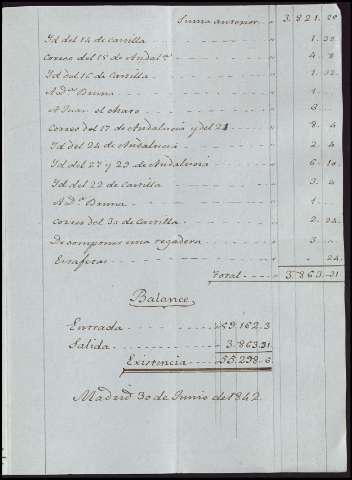 Suma anterior 3.821.20
Id del 14 de Castilla 1.32
Correo del 15 de Andal.ª 4.8
Id del 16 de Castilla 1.32
A D.ª Bruna 1
A Juan el 6
Correo del 17 de Andalucia y del 21 8.4
Id del 24 de Andalucia 2.4
Id del 27 y 29 de Andalucia 6.10
Id del 22 de Castilla 3.4
A D.ª Bruna 1
Correo del 30 de Castilla 2.24
De componer una regadera 3
Estafetas 24
Total 3.863.31
Balance
Entrada 59.162.3
Salida 3.863.31
Existencia 55.298.6
Madrid 30 de Junio de 1842